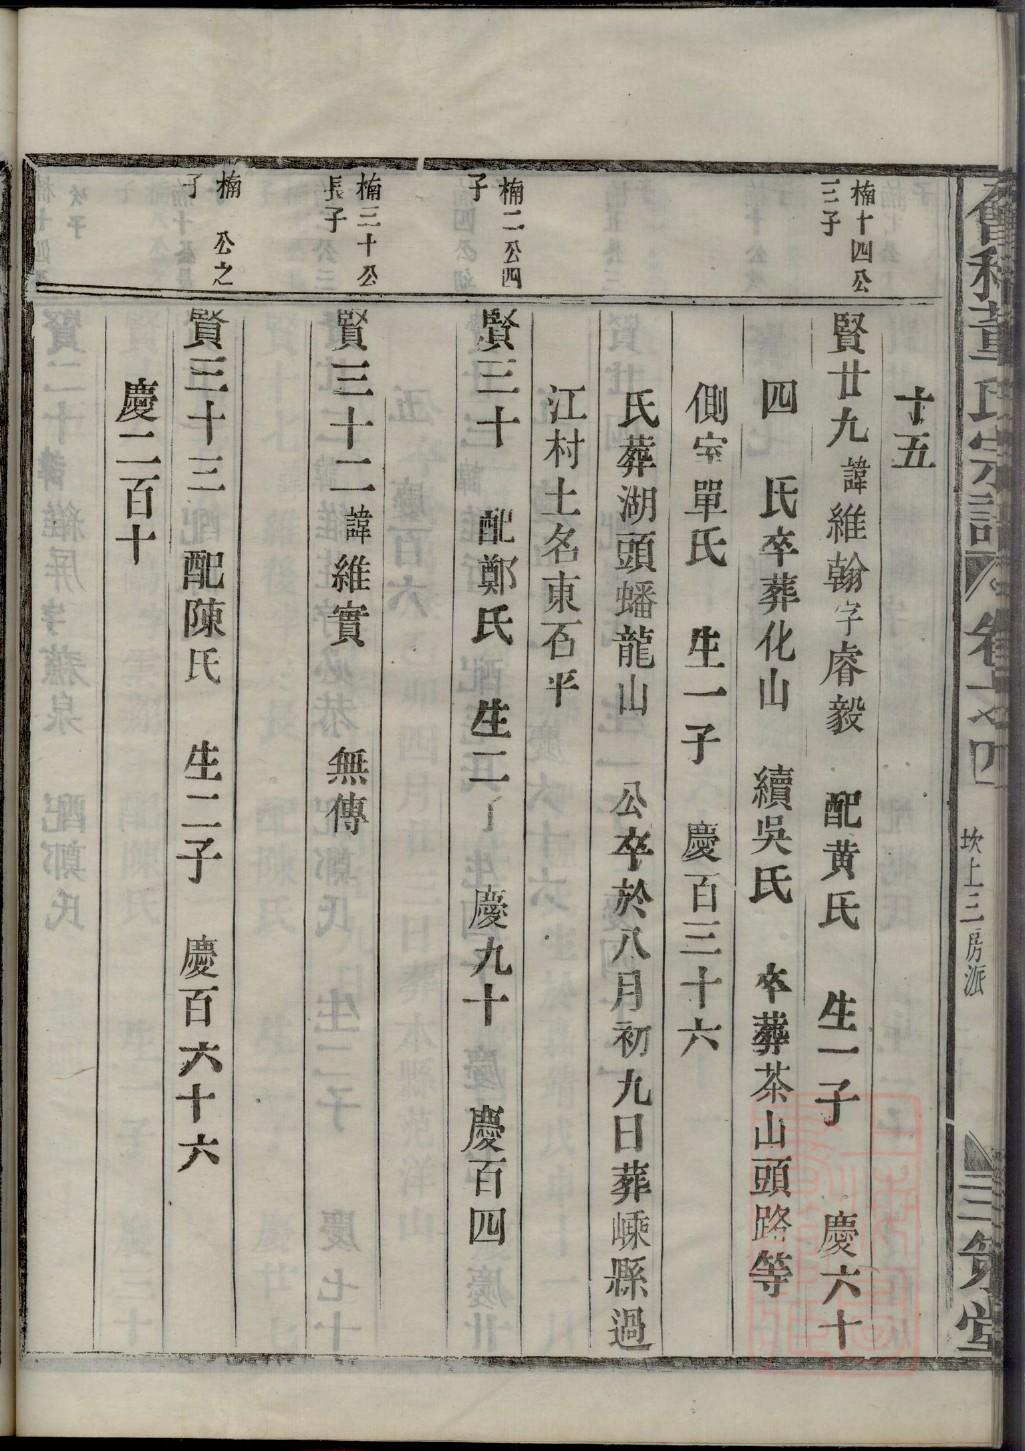 董氏宗譜 卷之四 坎上三房派 三策堂
十五
楠十四公
三子
賢廿九諱維翰字睿毅 配黄氏 生一子 慶六十
四 氏卒葬化山 續吳氏 卒葬茶山頭路等
側室單氏 生一子 慶百三十六
氏葬湖頭蟠龍山 公卒於八月初九日葬嵊縣過
江村土名東石平
楠二公四
子
賢三十 配鄭氏 生二 慶九十 慶百四
楠三十公
長子
賢三十二諱維實 無傳
楠 公之
子
賢三十三 配陳氏 生二子 慶百六十六
慶二百十